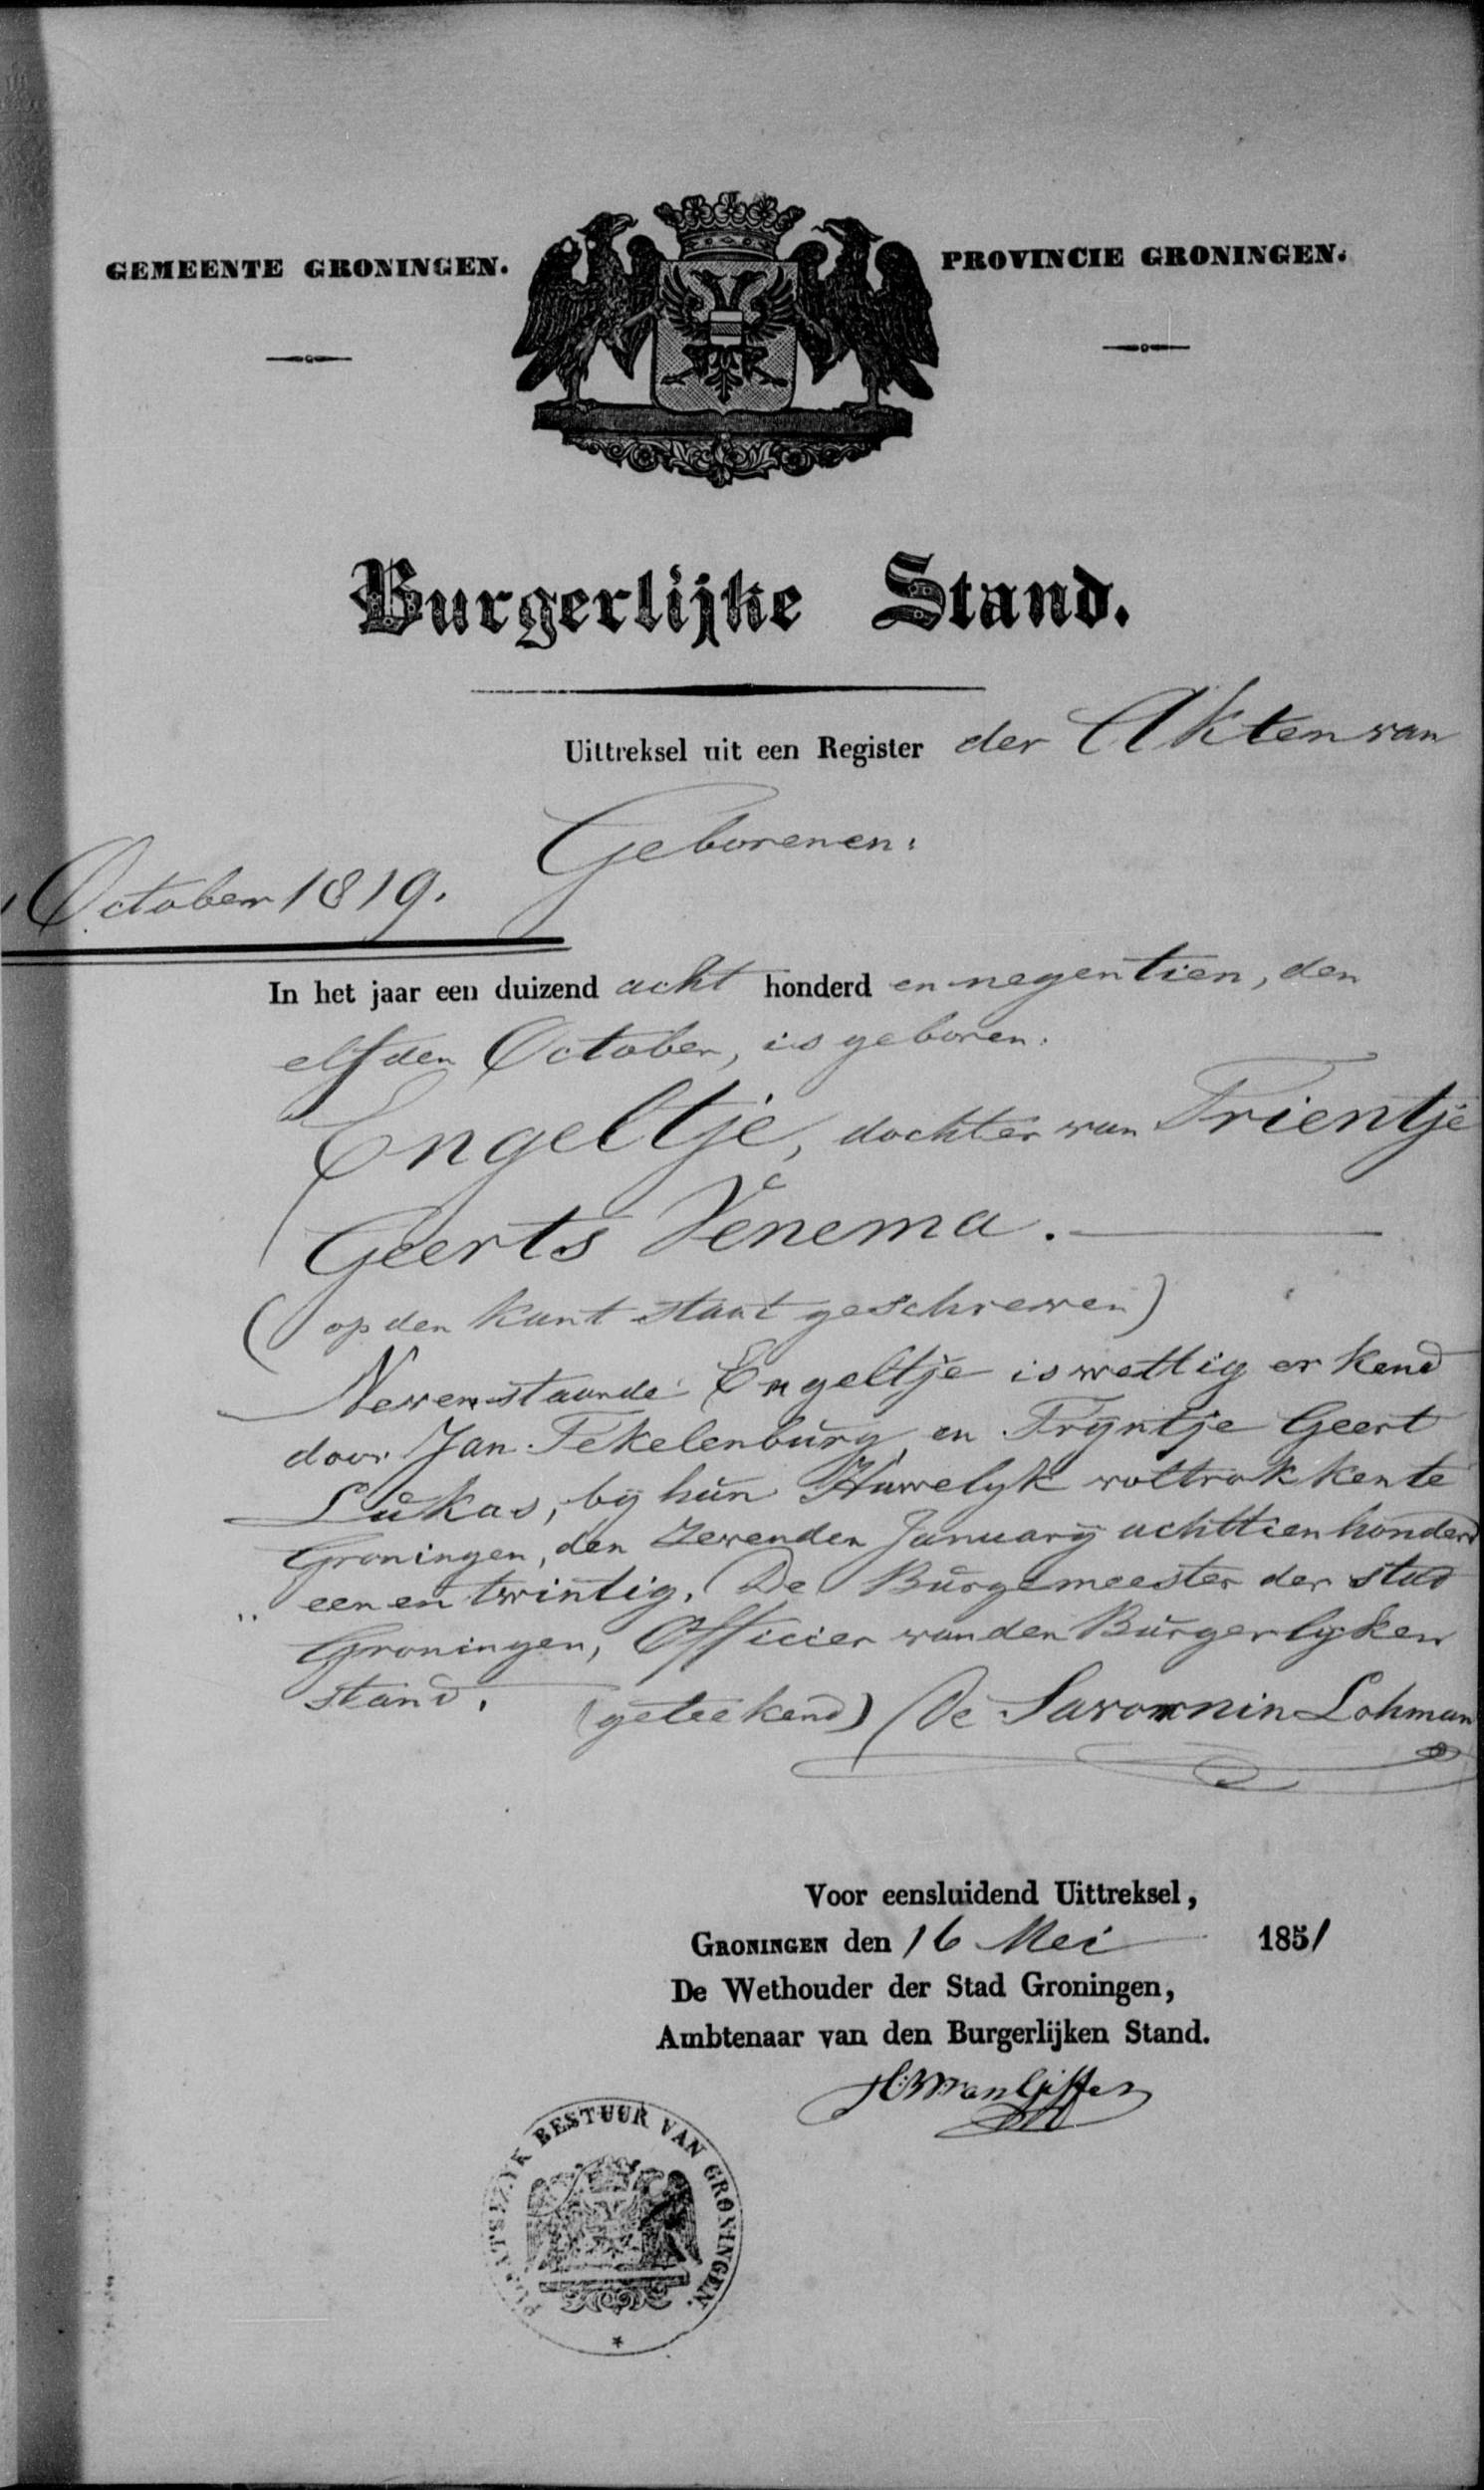 GEMEENTE GRONINGEN.
PROVINCIE GRONINGEN.
Burgerlijke Stand.
Uittreksel uit een Register der Akten van
Geborenen.
October 1819.
In het jaar een duizend acht honderd en negentien, den
elfden October, is geboren:
Engeltje, dochter van Trientje
Geerts Venema.
(op den kant staat geschreven)
Nevenstaande Engeltje is wettig erkend
door Jan Tekelenburg en Tryntje Geert
Lukas, by hun Huwelyk voltrokken te
Groningen, den Zevenden January achttien honderd
een en twintig. De Burgemeester der stad
Groningen, Officier van den Burgerlyken
stand. (geteekend) De Savornin Lohman
Voor eensluidend Uittreksel,
GRONINGEN den 16 Mei 1851
De Wethouder der Stad Groningen,
Ambtenaar van den Burgerlijken Stand.
PLAATSELYK BESTUUR VAN GRONINGEN.